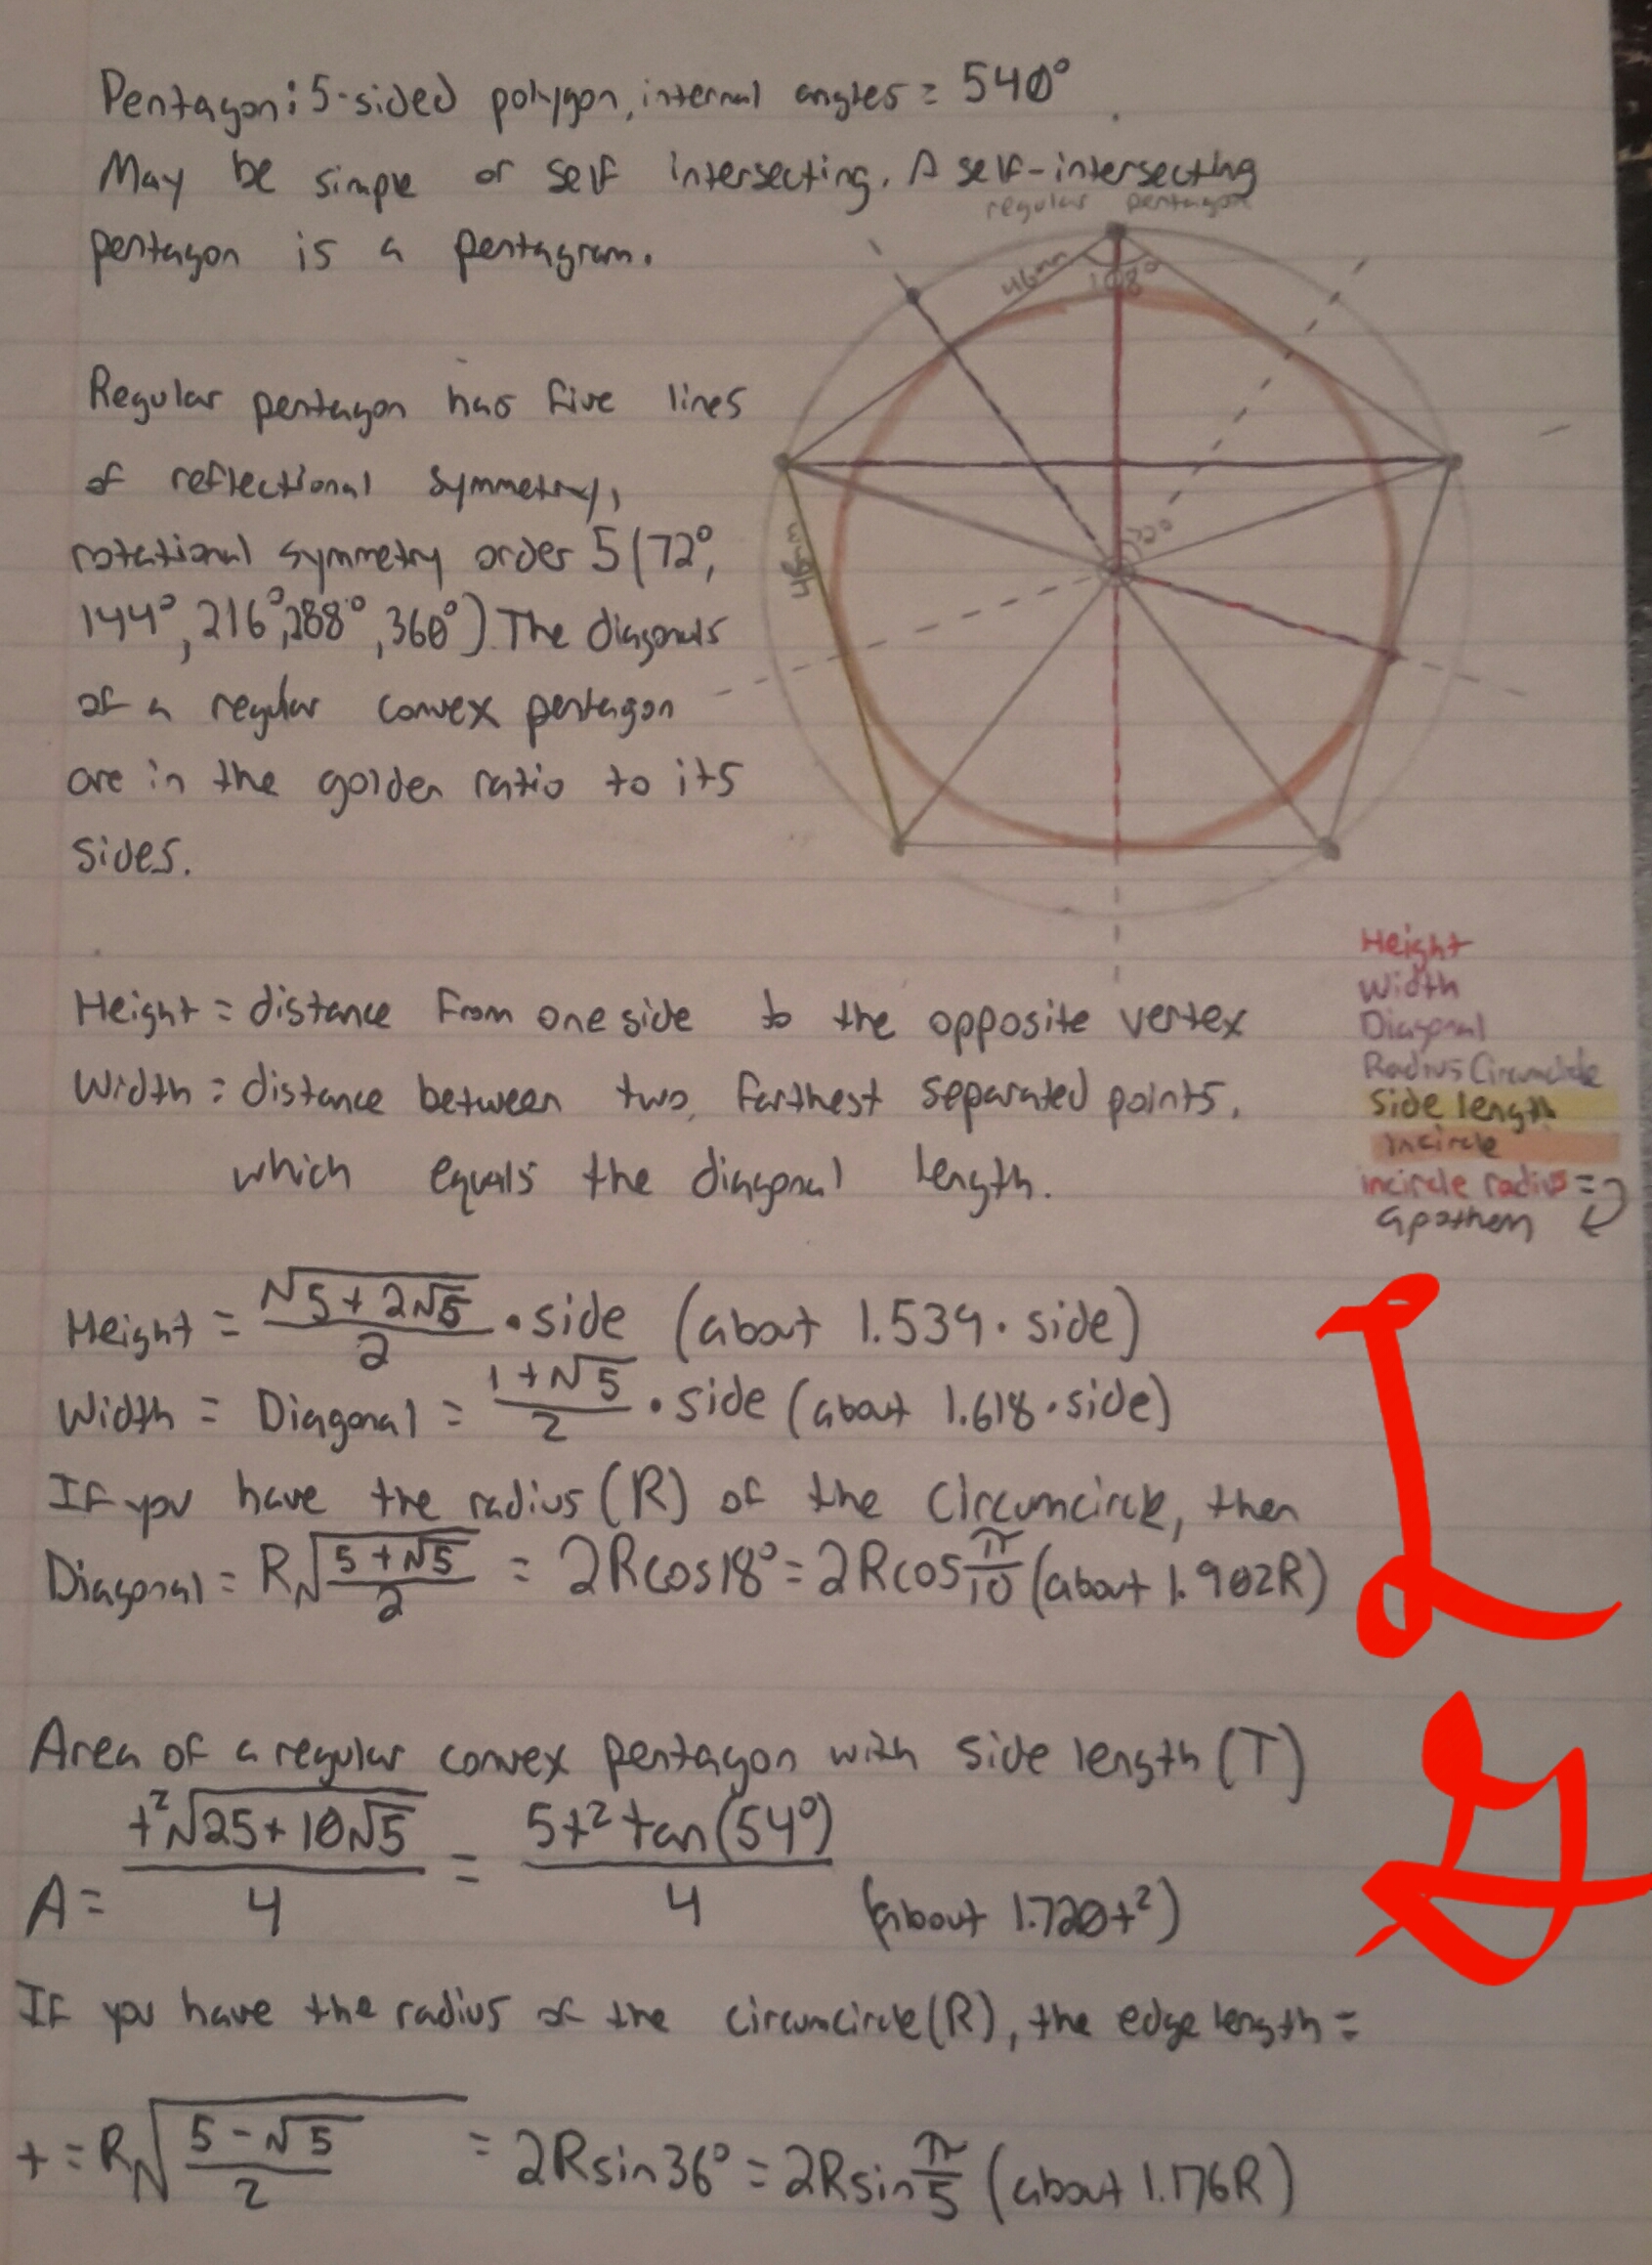 Pentagon: 5-sided polygon, internal angles = 540°
May be simple or self intersecting. A self-intersecting
regular pentagon
pentagon is a pentagram.
46mm
108°
Regular pentagon has five lines
of reflectional symmetry,
rotational symmetry order 5 (72°,
144°, 216°, 288°, 360°). The diagonals
of a regular convex pentagon
are in the golden ratio to its
sides.
Height
Width
Diagonal
Radius Circumcircle
Side length
Incircle
incircle radius =
apothem
Height = distance from one side to the opposite vertex
Width = distance between two farthest separated points,
which equals the diagonal length.
Height = √(5+2√5)/2 • side (about 1.539 • side)
Width = Diagonal = (1+√5)/2 • side (about 1.618 • side)
If you have the radius (R) of the circumcircle, then
Diagonal = R√((5+√5)/2) = 2Rcos18° = 2Rcos π/10 (about 1.902R)
Area of a regular convex pentagon with side length (T)
A = t²√(25+10√5)/4 = 5t² tan(54°)/4 (about 1.720t²)
If you have the radius of the circumcircle (R), the edge length =
t = R√((5-√5)/2) = 2Rsin36° = 2Rsin π/5 (about 1.176R)